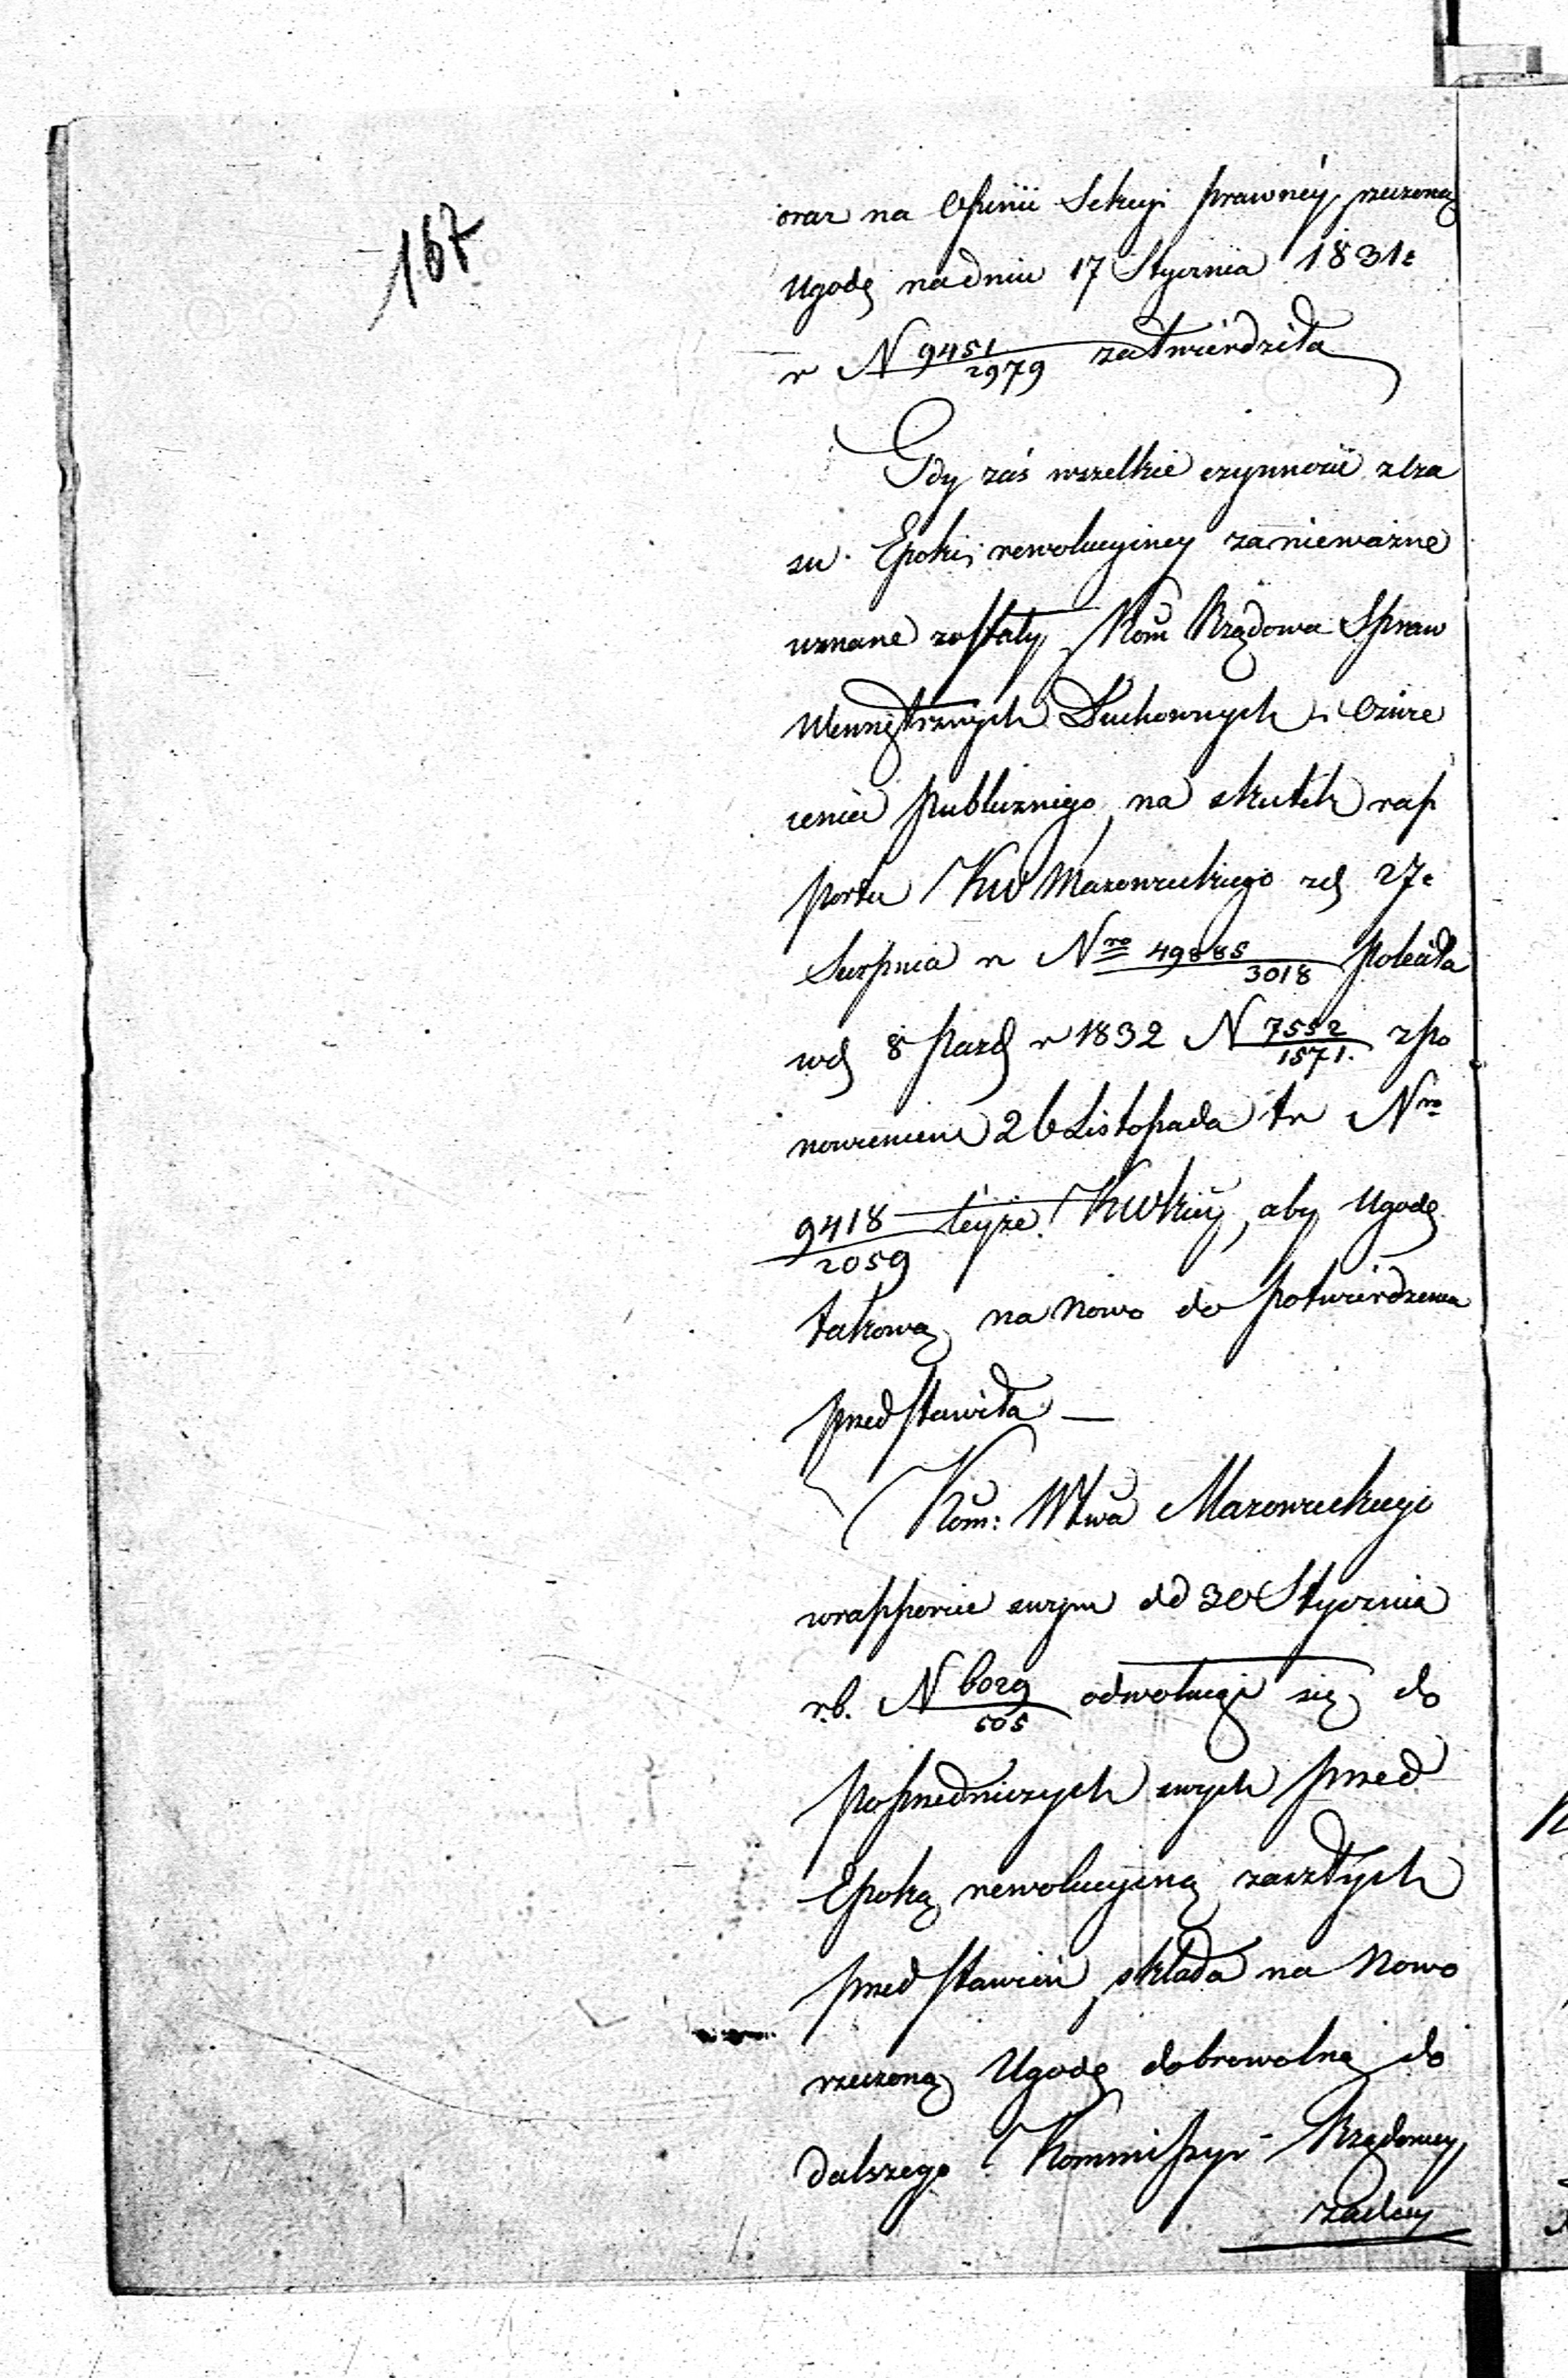 167
oraz na Opinii Sekcyi prawnéy, rzeczoną
Ugodę na dniu 17 Stycznia 1831 r
r N 9451/2979 zatwierdziła
Gdy zaś wszelkie czynności z cza
su Epoki rewolucyiney za nieważne
uznane zostały, Kom Rządowa Spraw
Wewnętrznych Duchownych i Oświe
cenia publicznego, na skutek rap
portu KW Mazowieckiego zd 27 o
Sierpnia r Nro 49885/3018 poleciła
wd 8 Pazd r 1832 N 7552/1571. z po
nowieniem 26 Listopada tr Nro
9418/2059 téyże KWkiéy, aby Ugodę
takową na nowo do potwierdzenia
przedstawiła —
Kom: Wtwa Mazowieckiego
w rapporcie swym dd 30 Stycznia
r.b. N 6029/505 odwołuąc się do
poprzedniczych swych przed
Epoką rewolucyiną zaszłych
przedstawień, składa na nowo
rzeczoną Ugodę dobrowolną do
dalszego Kommissyi Rządowey